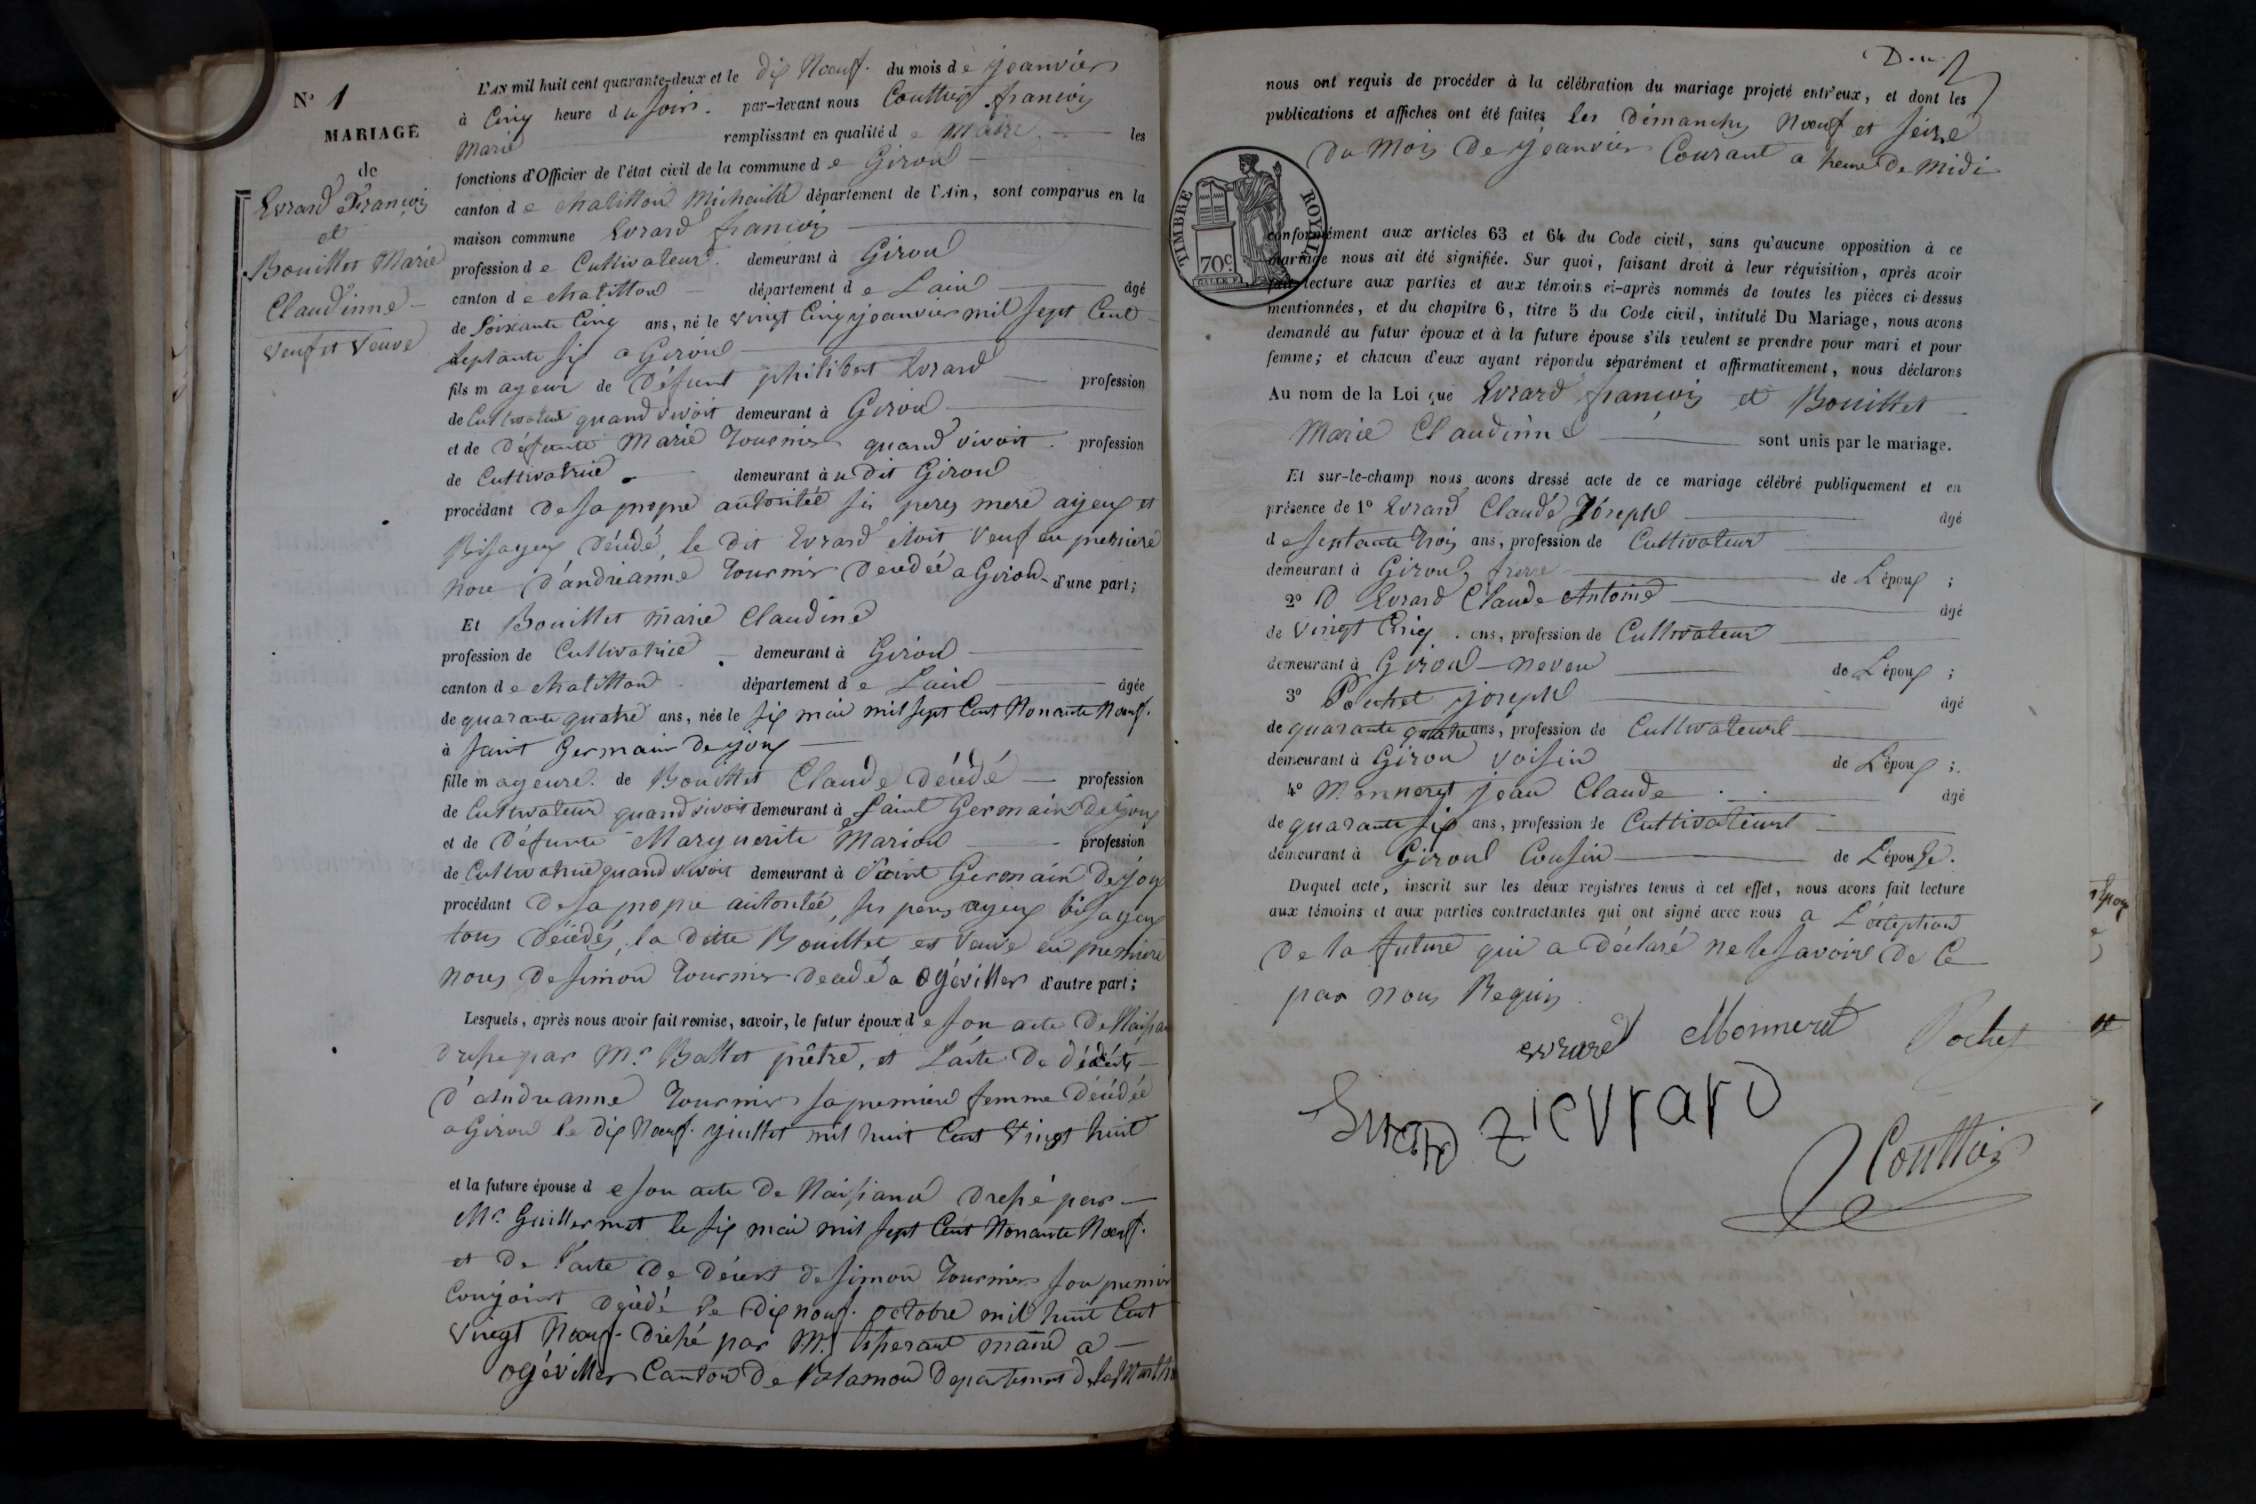 N° 1
MARIAGE
de
Evrard François
et
Bouillet Marie
Claudinne
veuf et veuve
L'AN mil huit cent quarante-deux et le dix Nœuf du mois de jeanvier
à Cinq heure du soir par-devant nous Couttier françois
Marie remplissant en qualité de Maire les
fonctions d'Officier de l'état civil de la commune de Giron
canton de chatillon Michaille département de l'Ain, sont comparus en la
maison commune Evrard françois
profession de Cultivateur demeurant à Giron
canton de chatillon département de Lain âgé
de Soixante Cinq ans, né le vingt Cinq jeanvier mil sept Cent
septante six a Giron
fils mageur de Défunt philibert Evrard profession
de Cultivateur quand vivoit demeurant à Giron
et de Défunte Marie Tournier quand vivoit profession
de Cultivatrice demeurant à u dit Giron
procédant de sa propre autoritée ses peres mere ayeux et
Bisayeux Décédé, le dit Evrard étoit veuf en premiere
noce d'andrianne Tournier Décédée a Giron d'une part;
Et Bouillet Marie Claudine
profession de Cultivatrice demeurant à Giron
canton de chatillon département de Lain âgée
de quarante quatre ans, née le six mai mil sept Cent Nonante Nœuf
à saint Germain de joux
fille mageure de Bouillet Claude Décédé profession
de Cultivateur quand vivoit demeurant à Saint Germain de joux
et de Défunte Marguerite Marion profession
de Cultivatrice quand vivoit demeurant à Saint Germain De joux
procédant De sa propre autoritée, ses peres ayeux bisayeux
tous Décédés, la ditte Bouillet est veuve en premiere
noces de simon Tournier Decedé a Ogéviller d'autre part;
Lesquels, après nous avoir fait remise, savoir, le futur époux de son acte De Naissan
Dressé par Mr Ballet prêtre, et L'acte De décès
D'andrianne Tournier sa premiere femme Décédée
a Giron le dix Nœuf juillet mil huit Cent Vingt huit
et la future épouse de son acte De Naissance Dressé par
Mr Guillermet le six mai mil sept Cent Nonante Nœuf
et De l'acte De Décest de simon Tournier son premier
Conjoint Décédé le Dix nœuf octobre mil huit Cent
Vingt Nœuf Dressé par Mr maire a
Ogéviller Canton De Blamon Departement De la
Deux
nous ont requis de procéder à la célébration du mariage projeté entr'eux, et dont les
publications et affiches ont été faites les Démanches Nœuf et seize
Du Mois De jeanvier Courant a heure De Midi
TIMBRE ROYAL
70c.
conformément aux articles 63 et 64 du Code civil, sans qu'aucune opposition à ce
mariage nous ait été signifiée. Sur quoi, faisant droit à leur réquisition, après avoir
fait lecture aux parties et aux témoins ci-après nommés de toutes les pièces ci-dessus
mentionnées, et du chapitre 6, titre 5 du Code civil, intitulé Du Mariage, nous avons
demandé au futur époux et à la future épouse s'ils veulent se prendre pour mari et pour
femme; et chacun d'eux ayant répondu séparément et affirmativement, nous déclarons
Au nom de la Loi que Evrard françois et Bouillet
Marie Claudinne sont unis par le mariage.
Et sur-le-champ nous avons dressé acte de ce mariage célébré publiquement et en
présence de 1° Evrard Claude Jóseph âgé
de septante trois ans, profession de Cultivateur
demeurant à Giron frere de L'époux;
2° D Evrard Claude Antoine âgé
de Vingt Cinq ans, profession de Cultivateur
demeurant à Giron neveu de L'époux;
3° Pochet joseph âgé
de quarante quatre ans, profession de Cultivateur
demeurant à Giron voisin de L'époux;
4° Monneret jean Claude âgé
de quarante six ans, profession de Cultivateur
demeurant à Giron Cousin de L'épouse.
Duquel acte, inscrit sur les deux registres tenus à cet effet, nous avons fait lecture
aux témoins et aux parties contractantes qui ont signé avec nous a L'éxeption
De la future qui a Déclaré ne le savoire De Ce
par nous Requis
evrard Monneret Pochet
Evrard zievrard
Couttier